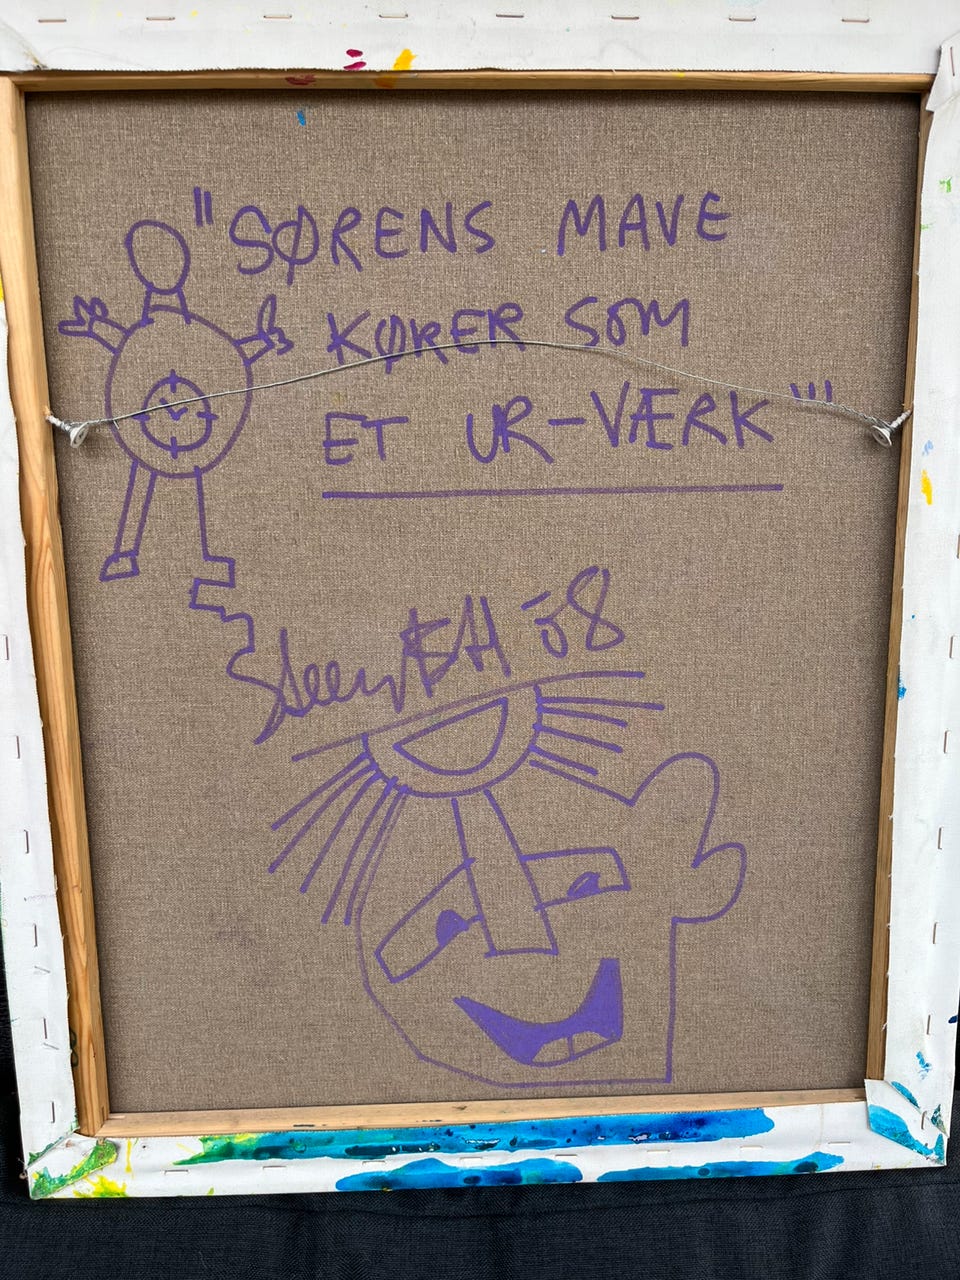 "SØRENS MAVE
KØRER SOM
ET UR-VÆRK"
Steen 08